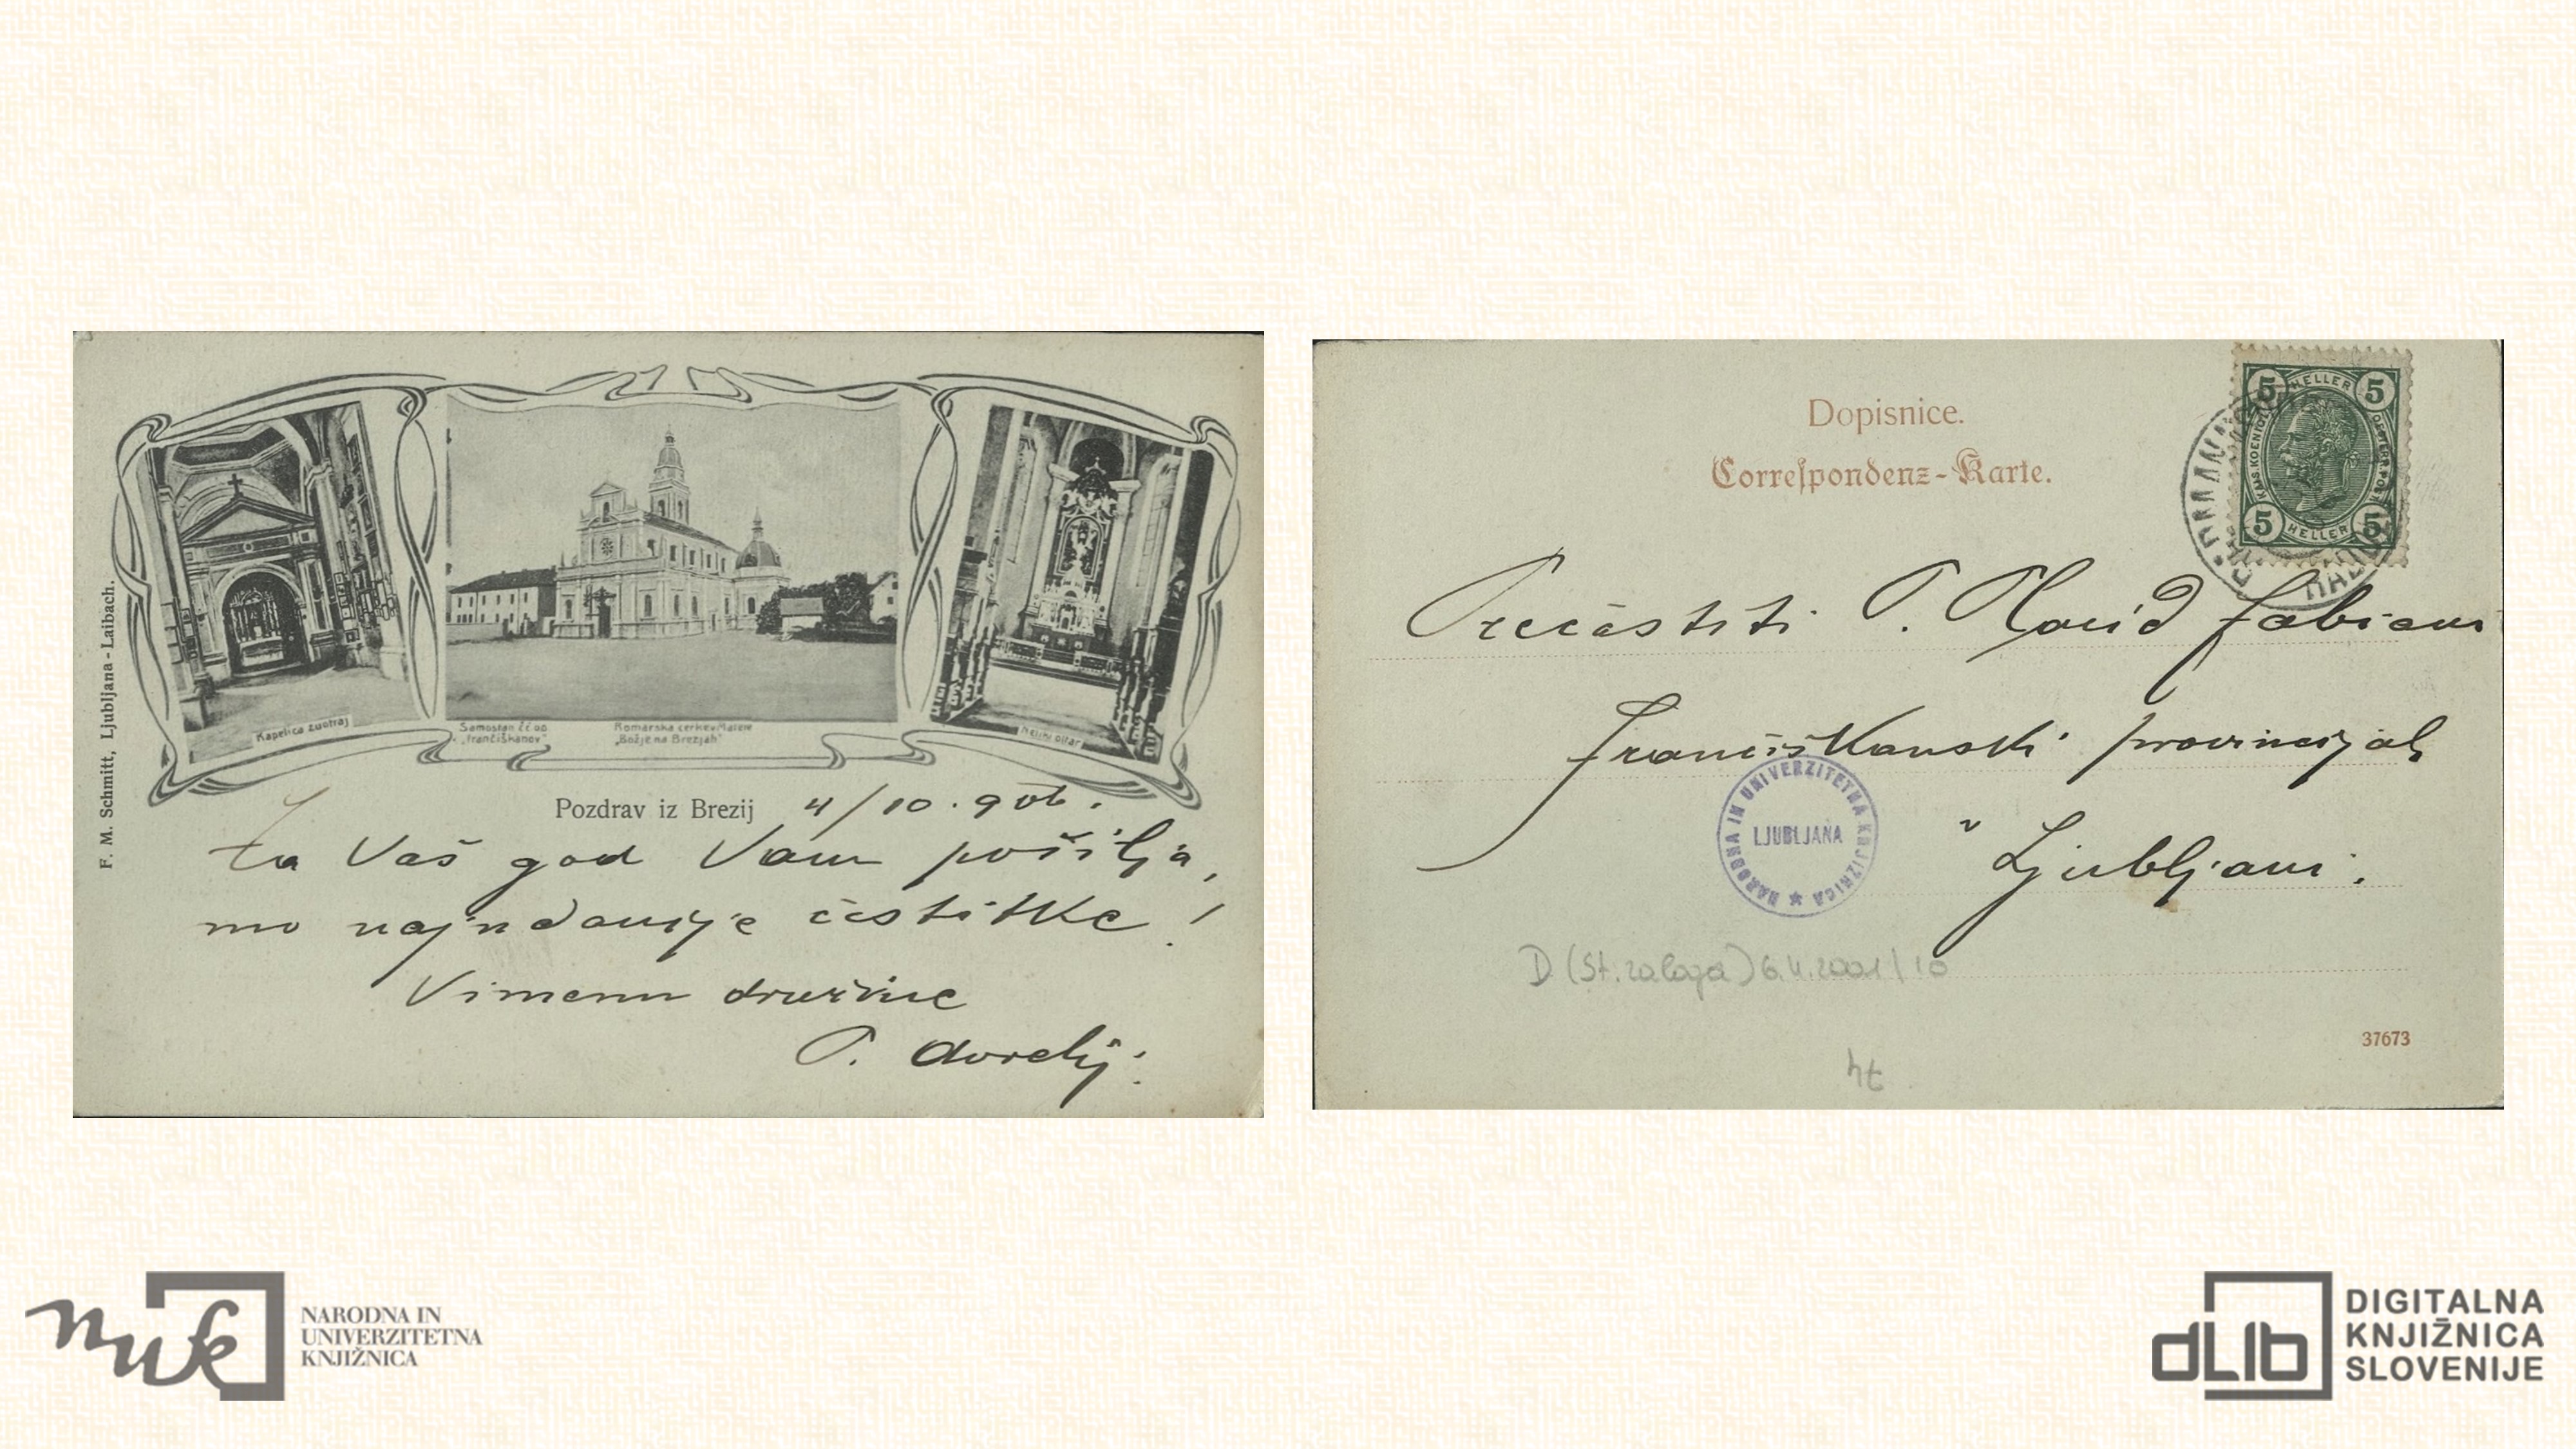 F. M. Schmitt, Ljubljana - Laibach.
Kapelica zuotraj
Samostan č č o o
„frančiškanov"
Romarska cerkev Matere
„Božje na Brezjah"
Veliki oltar
Pozdrav iz Brezij 4/10. 906.
Za Vaš god Vam pošilja,
mo najudanije čestitke!
V imenu družine
P. Avrelij.
Dopisnice.
Correspondenz-Karte.
5 HELLER 5
KAIS. KOENIGL. OESTERR. POST
5 HELLER 5
Prečastiti P. Placid Fabiani
Frančiškanski provincijal
v Ljubljani.
NARODNA IN UNIVERZITETNA KNJIŽNICA
LJUBLJANA
D (St. zaloga) 6.4.2001/10
37673
nuk
NARODNA IN
UNIVERZITETNA
KNJIŽNICA
dLib
DIGITALNA
KNJIŽNICA
SLOVENIJE